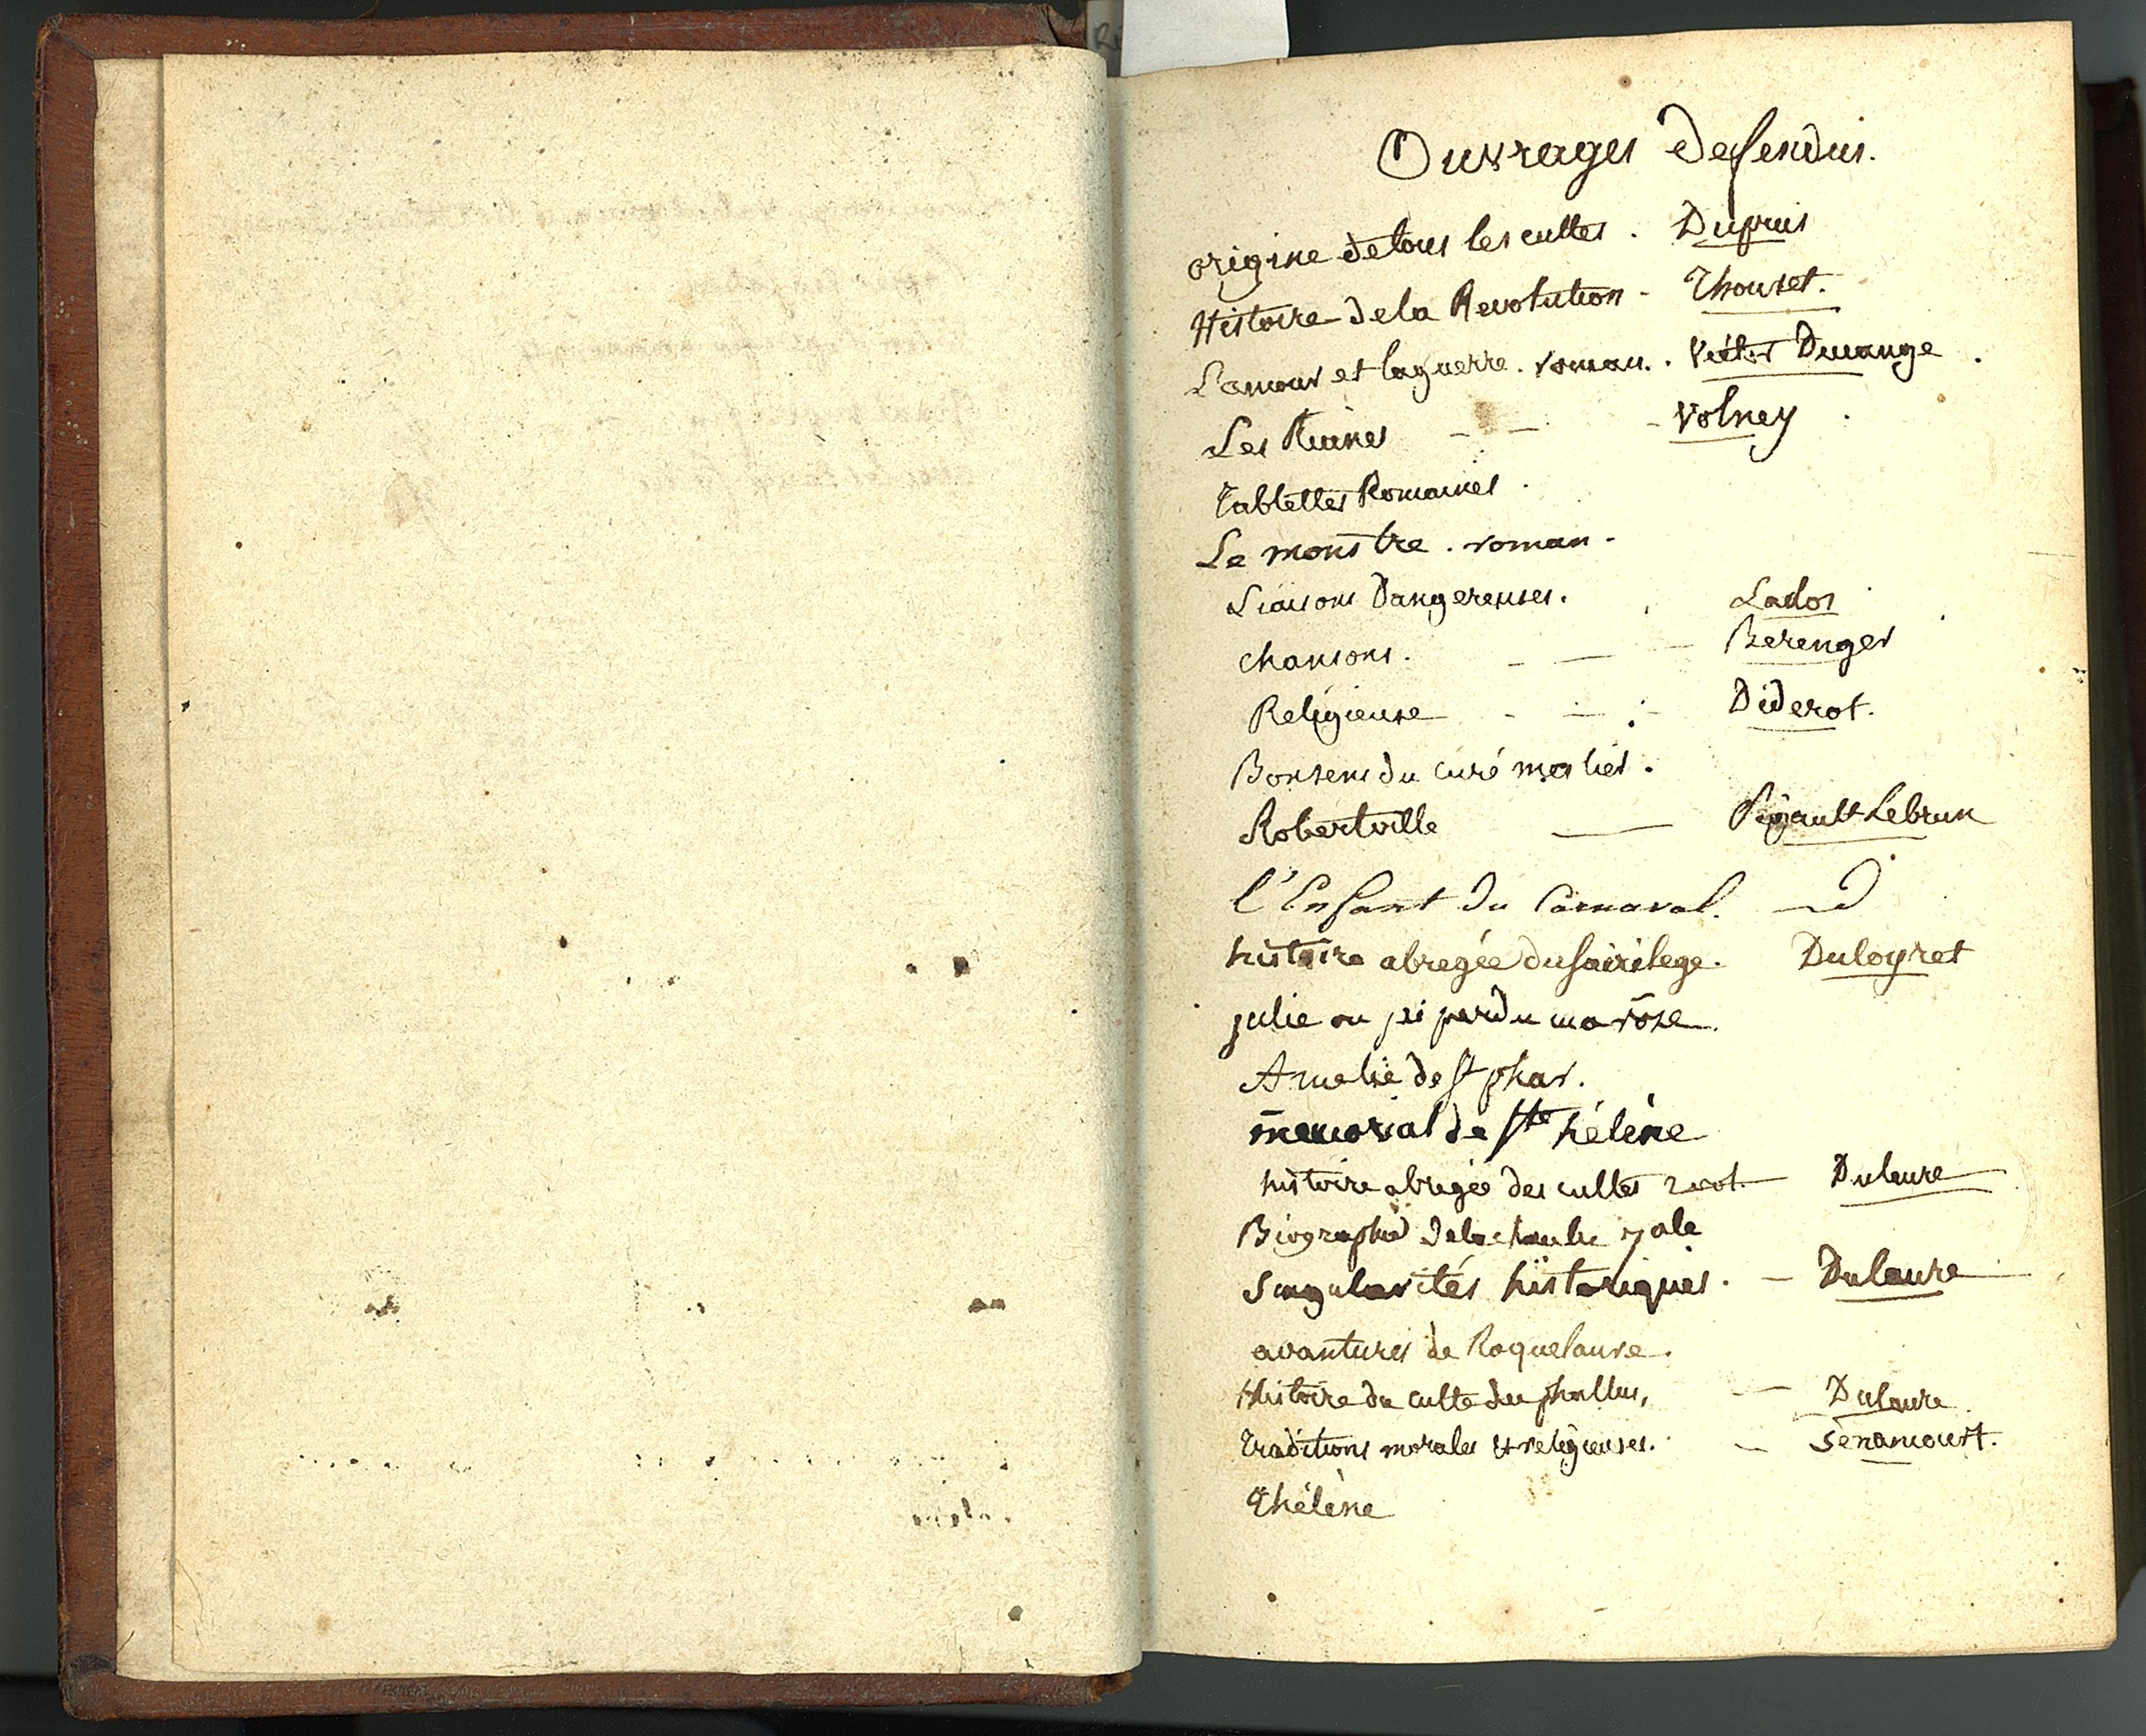 Ouvrages defendus.
origine de tous les cultes . Dupuis
Histoire de la Revolution - Thouret.
L'amour et la guerre . roman . Victor Ducange .
Les Ruines - - - Volney .
Tablettes Romaines .
Le monstre . roman .
Liaisons Dangereuses . Laclos
Chansons . - - - Berenger
Religieuse - - - Diderot.
Bon sens du curé meslier .
Robertville — Pigault Lebrun
l'Enfant du Carnaval. — d
histoire abregée du sacrilege . Duloyret
julie ou j'ai perdu ma rose .
Amelie de St phar .
mémorial de Ste hélène
histoire abregée des cultes 2 vol. — Dulaure
Biographie de la chambre
Singularités historiques . — Dulaure
avantures de Roquelaure .
Histoire du culte du phallus, — Dulaure
Traditions morales et religieuses . — Senancourt.
Thélène